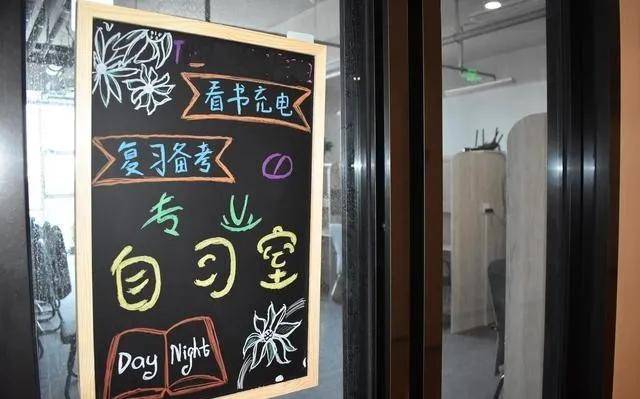 看书充电
复习备考
专业
自习室
Day Night